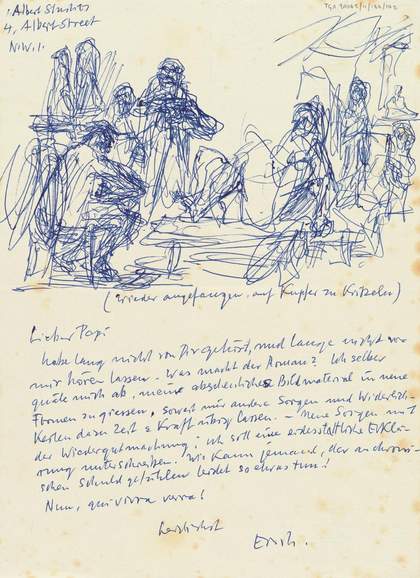 Albert Studios
4, Albert Street
N.W.1.
TGA
(wieder angefangen auf Kupfer zu kritzeln)
Lieber Papi
habe lang nicht von Dir gehört, und lange nicht von
mir hören lassen. Was macht der Roman? Ich selber
quäle mich ab, meine abscheuliches Bildmaterial in neue
Formen zu giessen, soweit mir andere Sorgen und Widerlich-
keiten dazu Zeit & Kraft übrig lassen. – Neue Sorgen mit
der Wiedergutmachung: ich soll eine eidesstattliche Erklä-
rung unterschreiben. Wie kann jemand, der an chroni-
schen Schuldgefühlen leidet so etwas tun!
Nun, qui vivra verra!
herzlichst
Erich.